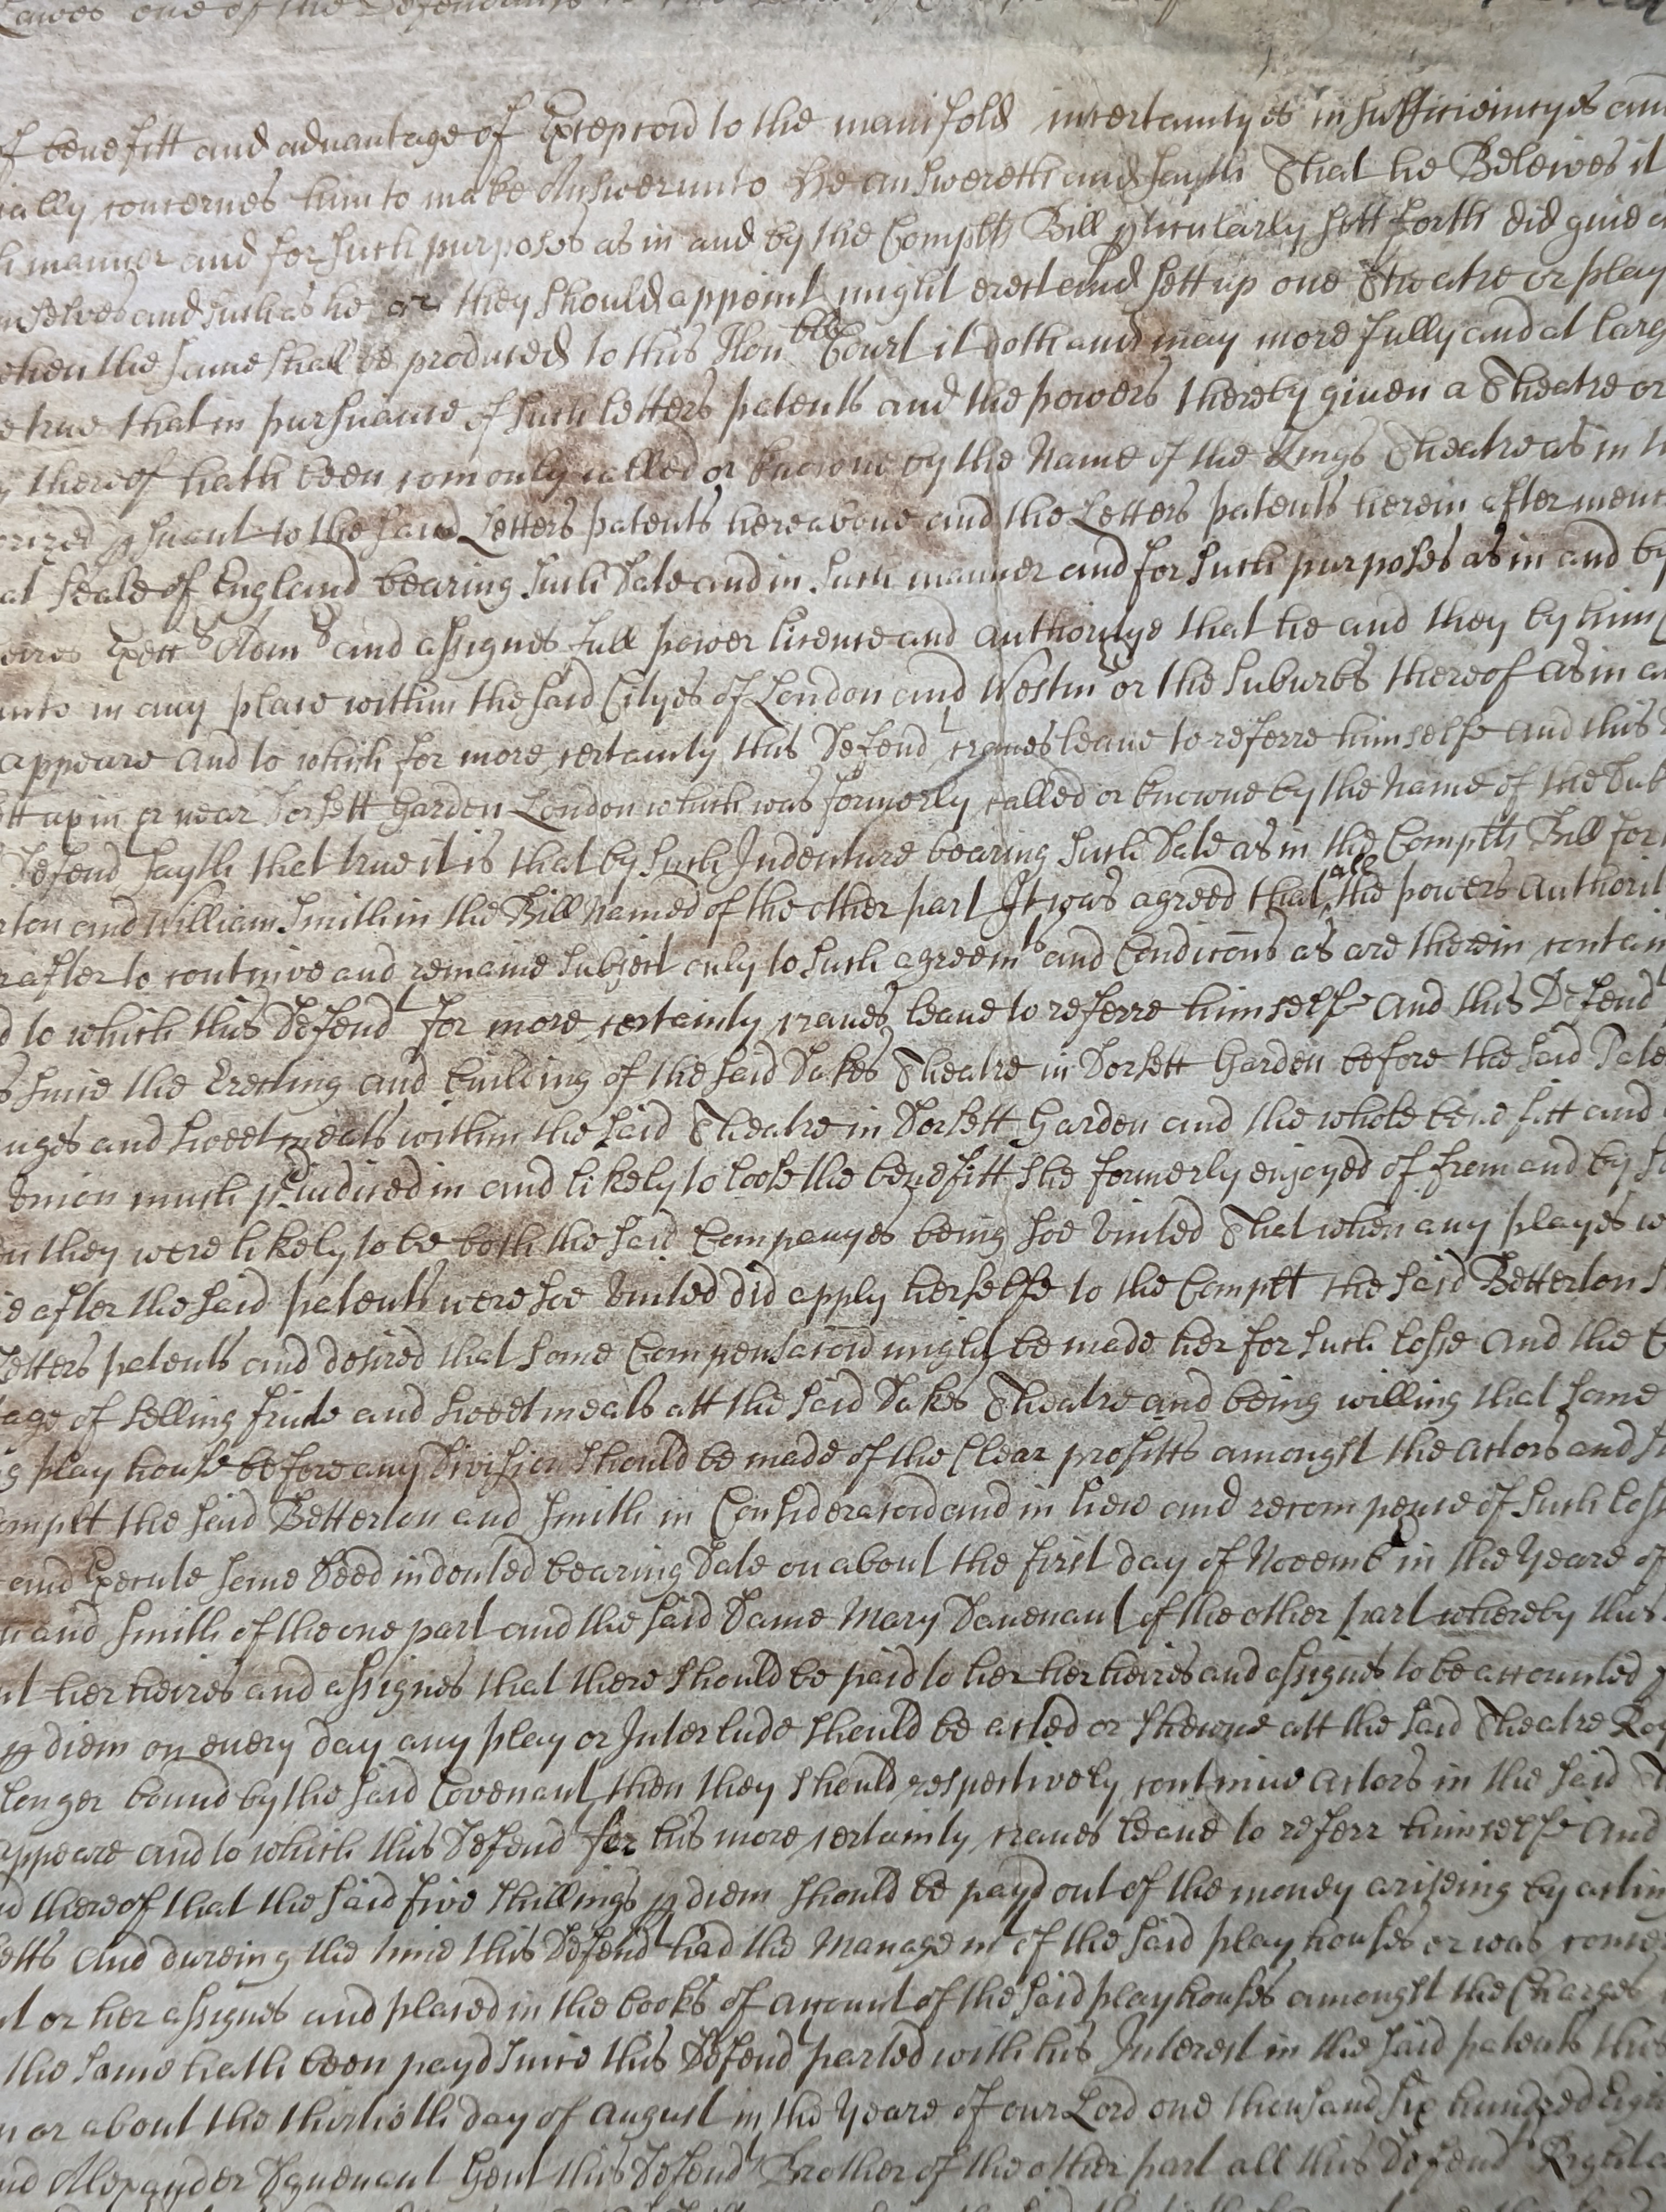 one of the Defendants
benefitt and advantage of Excepcon to the manifold incertaintyes insufficiencyes and
ially concernes him to make Answer unto He answereth and sayth That he Beleives it
manner and for such purposes as in and by the Complts Bill pticularly sett forth did give
mselves and such as he or they should appoint might erect and sett up one Theatre or play
when the same shall be produced to this Honble Court it doth and may more fully and at large
e true that in pursuance of such letters patents and the powers thereby given a Theatre or
thereof hath been comonly called or knowne by the Name of the Kings Theatre as in
orized psuant to the said Letters patents hereabove and the Letters patents herein after ment
at Seale of England bearing such Date and in such manner and for such purposes as in and by
eires Exects Adms and assignes full power licence and authoritye that he and they by him
unto in any place within the said Cityes of London and Westmr or the Suburbs thereof as in
appeare And to which for more certainty this Defendt craves leave to referre himselfe And this
ett up in or near Dorsett Garden London which was formerly called or knowne by the Name of the Duk
Defend sayth that true it is that by such Indenture bearing such Date as in the Complts Bill for
rton and William Smith in the Bill Named of the other part It was agreed that all the powers Authorit
rafter to continue and remaine subject only to such agreemts and Condicons as are therein contain
d to which this Defendt for more certainty craves leave to referre himselfe And this Defendt
s since the Erecting and building of the said Dukes Theatre in Dorsett Garden before the said Pate
nges and sweetmeats within the said Theatre in Dorsett Garden and the whole benefitt and
Union much pjudiced in and likely to loose the benefitt she formerly enjoyed of from and by
n they were likely to be both the said Companyes being soe United That when any playes w
e after the said patents were soe United did apply herselfe to the Complt the said Betterton
Letters patents and desired that some Compensacon might be made her for such losse And the
tage of selling fruite and sweetmeats att the said Dukes Theatre and being willing that some
g play house before any Division should be made of the Clear profitts amongst the Actors and
omplt the said Betterton and Smith in Consideracon and in liew and recompence of such loss
and Execute some Deed indented bearing Date on about the first day of Novemb in the Yeare of
n and Smith of the one part and the said Dame Mary Davenant of the other part whereby this
nt her heires and assignes that there should be paid to her her heires and assignes to be accounted
p diem on every day any play or Interlude should be acted or shewne att the said Theatre Roy
longer bound by the said Covenant then they should respectively continue Actors in the said
appeare And to which this Defend for his more certainty craves leave to referr himselfe And
d thereof that the said five shillings p diem should be payd out of the money ariseing by acting
etts And dureing the time this Defendt had the Managemt of the said play houses or was conce
t or her assignes and placed in the books of account of the said playhouses amongst the Charges
the same hath been payd since this Defendt parted with his Interest in the said patents this
n or about the thirtieth day of August in the Yeare of our Lord one thousand six hundred Eigh
nd Alexander Davenant Gent this Defendts Brother of the other part all this Defendts Right